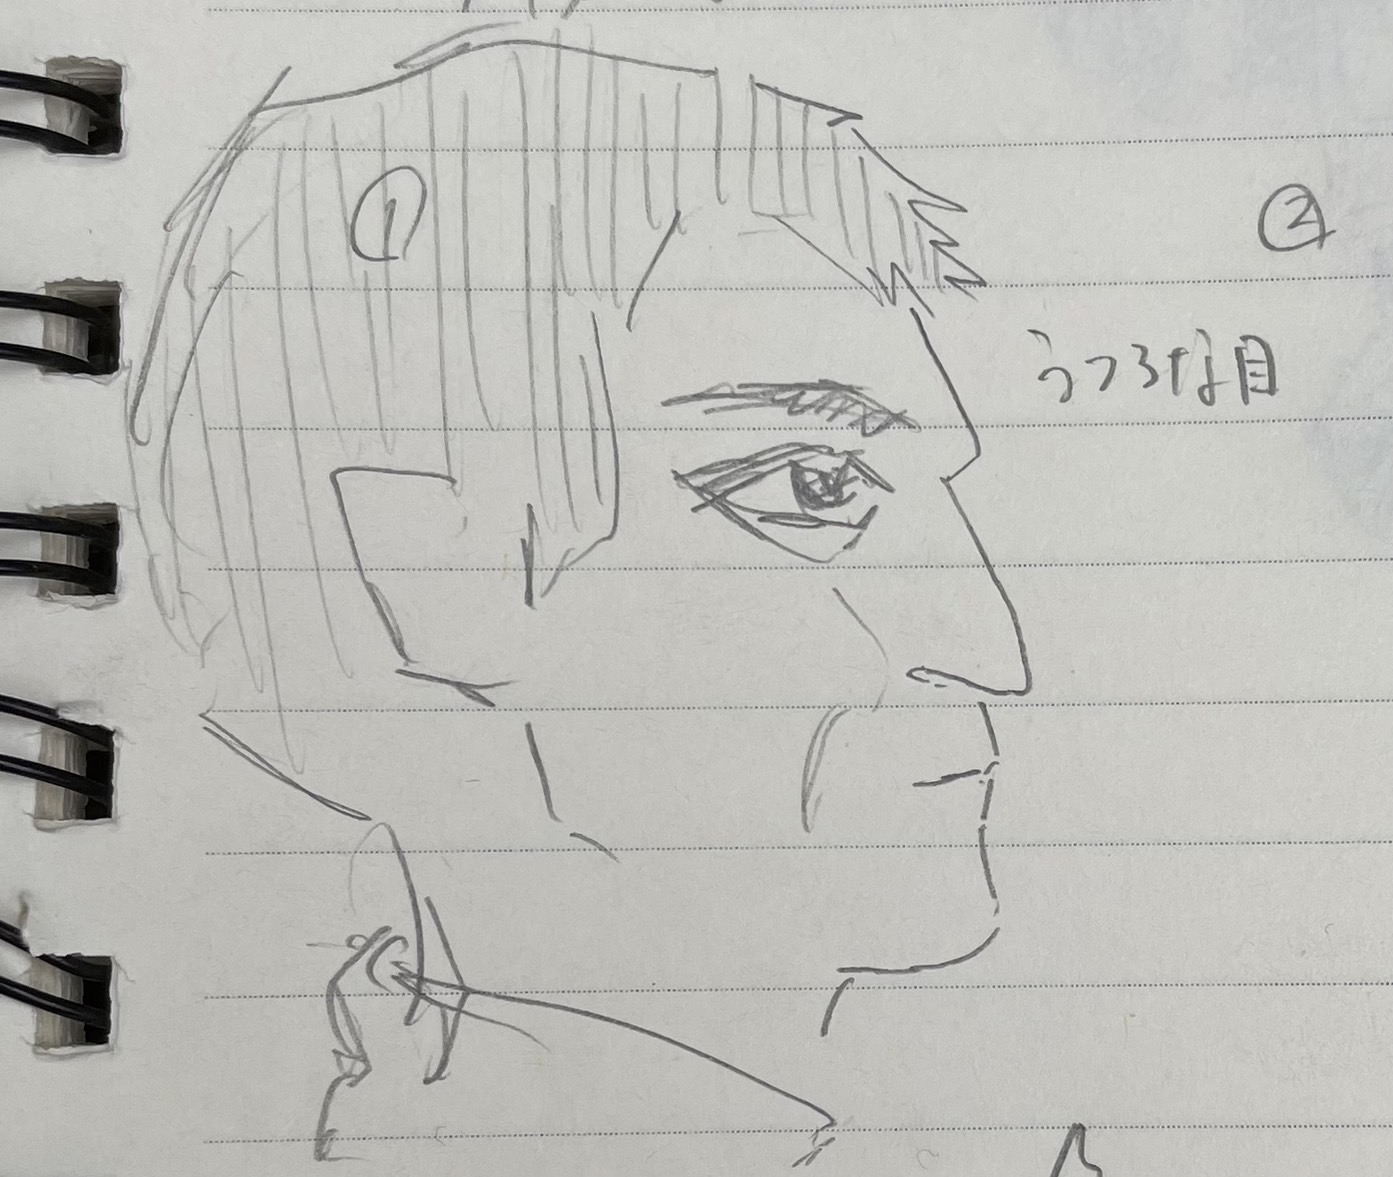 ①
②
うつろな目